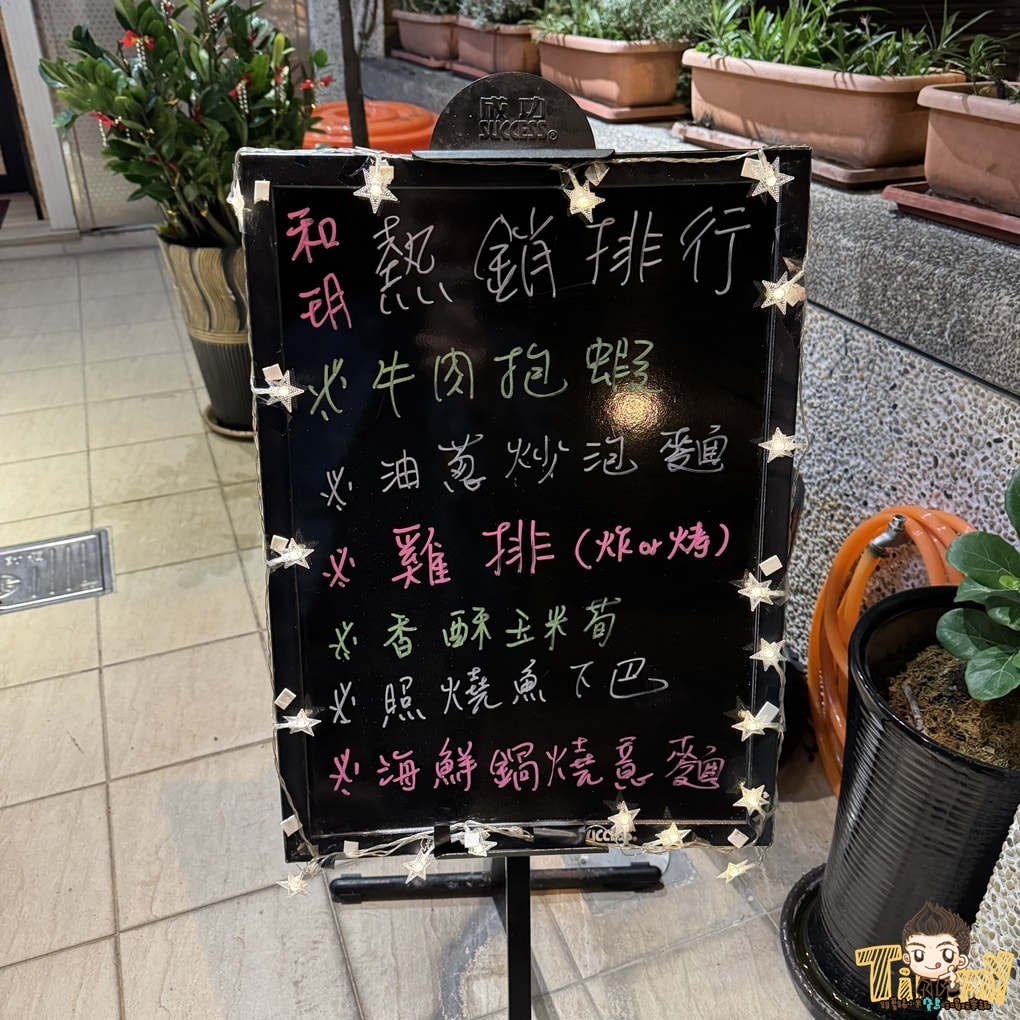 成功
SUCCESS®
和玥
熱銷排行
※牛肉抱蝦
※油蔥炒泡麵
※雞排(炸or烤)
※香酥玉米荀
※照燒魚下巴
※海鮮鍋燒意麵